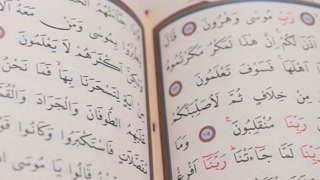 رَبِّ مُوسٰى وَهٰرُونَ قَالَ
اٰذَنَ لَكُمْ اِنَّ هٰذَا لَمَكْرٌ مَكَرْتُمُوهُ
اَهْلَهَا فَسَوْفَ تَعْلَمُونَ
مِنْ خِلَافٍ ثُمَّ لَاُصَلِّبَنَّكُمْ
رَبِّنَا مُنْقَلِبُونَ وَمَا
رَبِّنَا لَمَّا جَٓاءَتْنَا رَبَّنَٓا اَفْرِغْ
بِمُوسٰى وَمَنْ مَعَهُ
وَلٰكِنَّ اَكْثَرَهُمْ لَا يَعْلَمُونَ
مِنْ اٰيَةٍ لِتَسْحَرَنَا بِهَا فَمَا نَحْنُ
عَلَيْهِمُ الطُّوفَانَ وَالْجَرَادَ وَالْقُمَّلَ
مُفَصَّلَاتٍ فَاسْتَكْبَرُوا وَكَانُوا
قَالُوا يَا مُوسَى